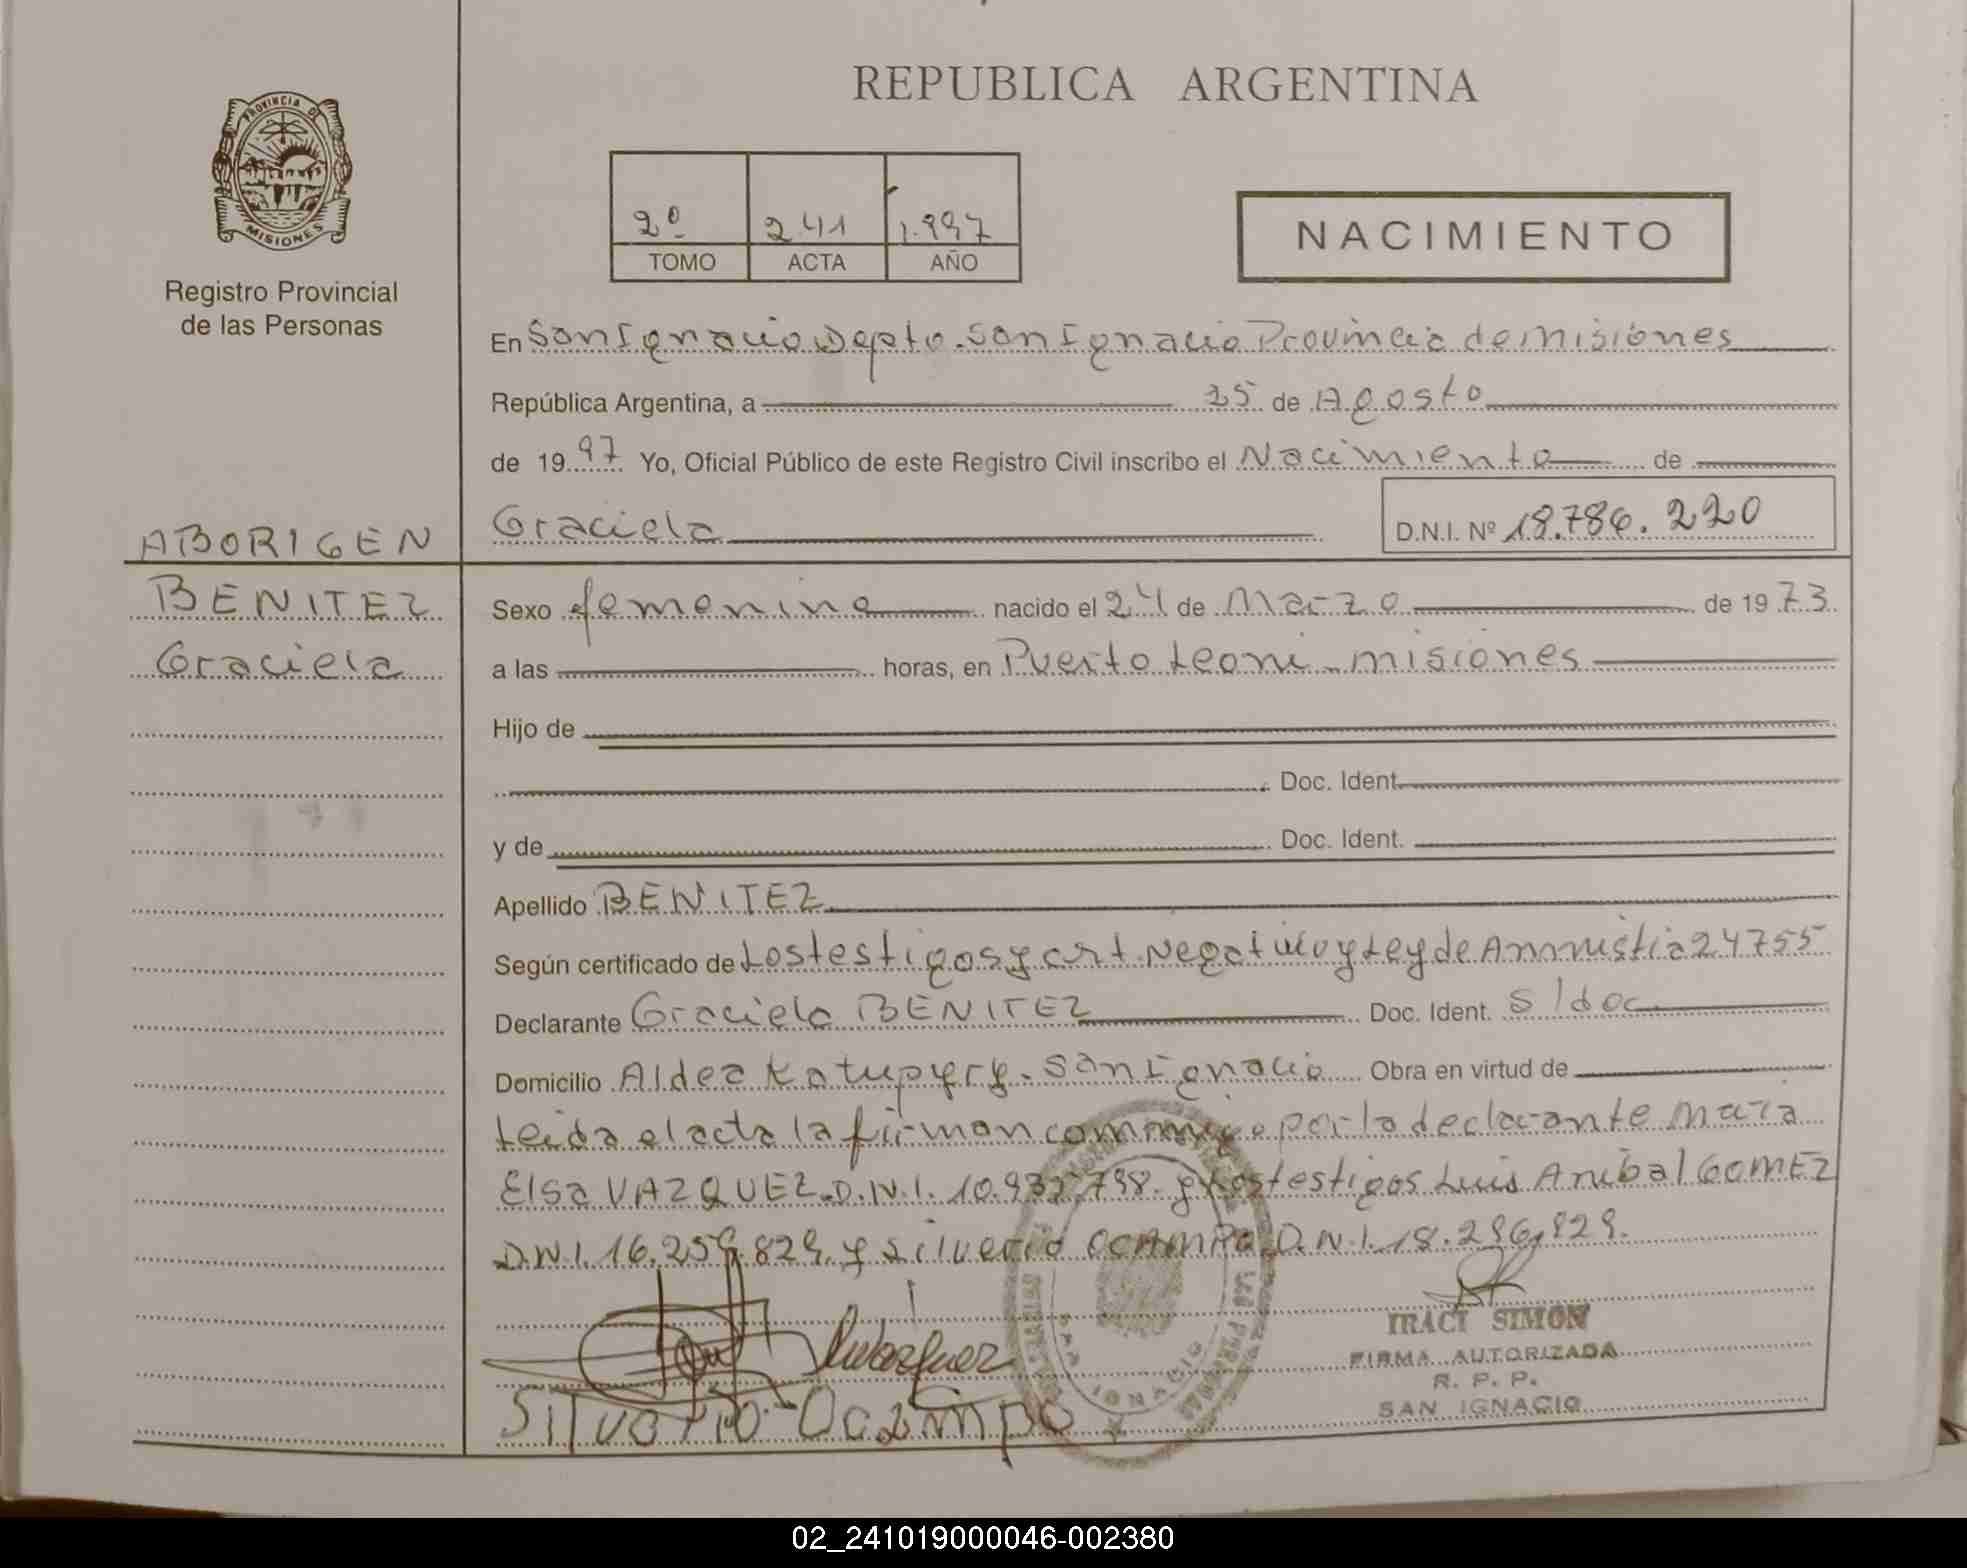 REPUBLICA ARGENTINA
PROVINCIA DE
MISIONES
Registro Provincial
de las Personas
2º 241 1.997
TOMO ACTA AÑO
NACIMIENTO
En San Ignacio Depto. San Ignacio Provincia de Misiones
República Argentina, a 25 de Agosto
de 1997 Yo, Oficial Público de este Registro Civil inscribo el Nacimiento de
Graciela D.N.I. Nº 18.786.220
ABORIGEN
BENITEZ
Graciela
Sexo femenino nacido el 24 de Marzo de 1973
a las horas, en Puerto Leoni - misiones
Hijo de
Doc. Ident.
y de Doc. Ident.
Apellido BENITEZ
Según certificado de Los testigos y cert. Negativo y Ley de Amnistia 24755
Declarante Graciela BENITEZ Doc. Ident. S/doc
Domicilio Aldea Katupyry - San Ignacio Obra en virtud de
Leida el acta la firman conmigo por la declarante Maria
Elsa VAZQUEZ D.N.I. 10.937.798 y los testigos Luis Anibal GOMEZ
D.N.I. 16.259.829 y Silverio OCAMPO D.N.I. 18.296.829.
IRACI SIMON
FIRMA AUTORIZADA
R. P. P.
SAN IGNACIO
Silverio Ocampo
SAN IGNACIO
02_241019000046-002380